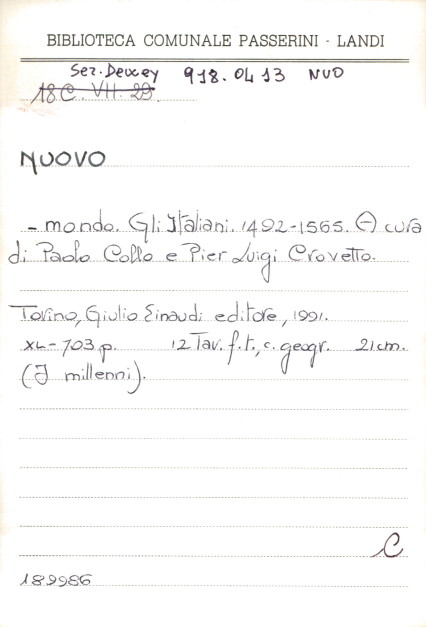 BIBLIOTECA COMUNALE PASSERINI - LANDI
Sez. Dewey 918.04 13 NUO
18C. VII. 29
NUOVO
- mondo. Gli Italiani. 1492-1565. A cura
di Paolo Collo e Pier Luigi Crovetto.
Torino, Giulio Einaudi editore, 1991.
XL-703 p. 12 Tav. f.t., c. geogr. 21 cm.
(I millenni).
C
189986